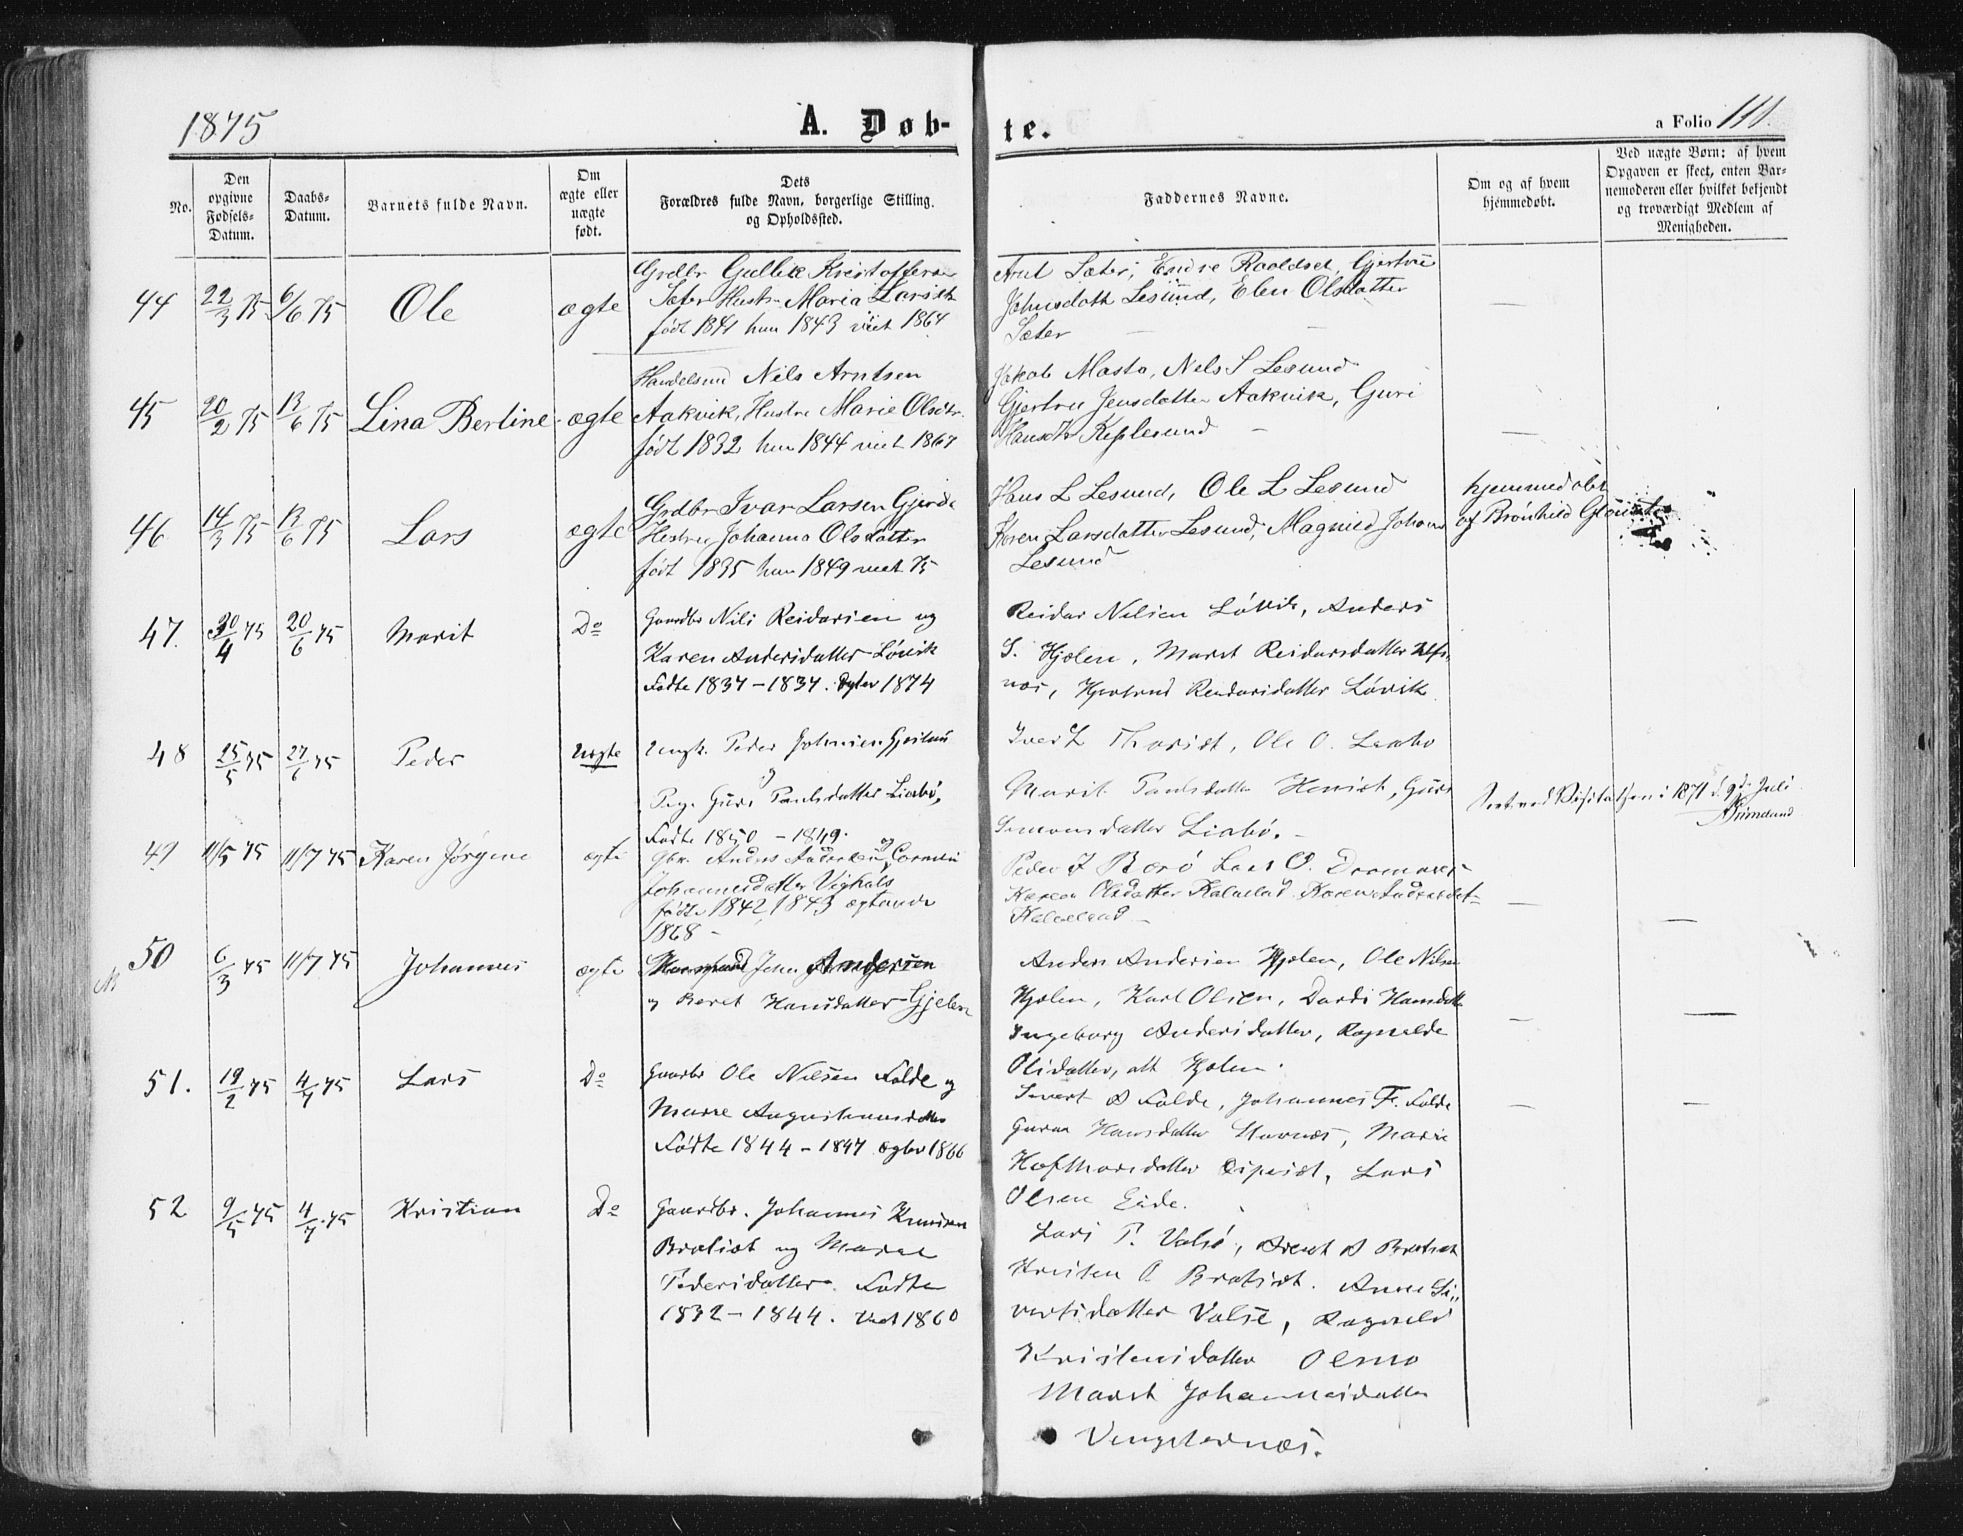 1875
A. Døb-
te.
a Folio 111.
No.
Den
opgivne
Fødsels-
Datum.
Daabs-
Datum.
Barnets fulde Navn.
Om
ægte eller
uægte
født.
Dets
Forældres fulde Navn, borgerlige Stilling.
og Opholdssted.
Faddernes Navne.
Om og af hvem
hjemmedøbt.
Ved uægte Børn: af hvem
Opgaven er skeet, enten Bar-
nemoderen eller hvilket bekjendt
og troværdigt Medlem af
Menigheden.
44 22/3 75 6/6 75 Ole ægte
Grdbr Gullik Kristoffersen
Sæter Hustr. Maria Larsdt
født 1841 hun 1843 viet 1864
Arnt Sæter, Endre Roaldset, Gjertru
Johnsdatt Lesund, Elen Olsdatter
Sæter
45 20/2 75 13/6 75 Lina Bertine ægte
Handelsmd Nils Arntsen
Aakvik, Hustru Marie Olsdtr.
født 1832 hun 1844 viet 1867
Jakob Masto, Nels S Lesund
Gjertru Jensdatter Aakvik, Guri
Hansdtr Keplesund
46 14/3 75 13/6 75 Lars ægte
Grdbr Ivar Larsen Gjerde
Hustru Johanna Olsdatter
født 1835 hun 1849 viet 75
Hans L Lesund, Ole L Lesund
Karen Larsdatter Lesund, Magnild Johans
Lesund
hjemmedøbt
af Brønhild
47. 30/4 75 20/6 75 Marit Do
Gaardbr Nils Reidarsen og
Karen Andersdatter Løvik
Fødte 1837 - 1837. Ægtev 1874
Reidar Nilsen Løvik, Anders
S. Hjelen, Marit Reidarsdatter
næs, Hjertrud Reidarsdatter Løvik
48 25/5 75 27/6 75 Peder uægte
Ungk. Peder Johnsen
Pige Guri Paulsdatter Liabø,
Fødte 1850 - 1849.
Iver L Thorset, Ole O. Liabø
Marit Paulsdatter Henset, Guri
Simonsdatter Liabø.
Seet ved Visitatsen i 1875 d. 9de Juli
49 11/5 75 11/7 75 Karen Jørgine ægte
Gbr. Anders Andersen og
Johannesdatter
fødte 1842, 1843 ægteviede
1868 -
Peder J Berø Lars O.
Karen Olsdatter Karen Andersdat-
50 6/3 75 11/7 75 Johannes ægte
John Andersen
og Beret Hansdatter Gjelen
Anders Andersen Hjelen, Ole Nilsen
Hjelen, Karl Olsen, Dordi Hansdtr
Ingeborg Andersdatter, Ragnilde
Olsdatter, alt Hjelen.
51. 19/2 75 4/7 75 Lars Do
Gaardbr Ole Nilsen Folde og
Marie Augustinusdatter
Fødte 1844 - 1847 ægtev 1866
Sivert A Folde, Johannes F. Folde
Guru Hansdatter Stavnæs, Marie
Hofthorsdatter Espset, Lars
Olsen Eide.
52 9/5 75 4/7 75 Kristian Do
Gaardbr. Johannes Knudsen
Bratset og Maren
Pedersdatter. Fødte
1832 - 1844. Viet 1860
Lars P. Valsø, Arent A Bratset
Kristen A Bratset. Anne Si-
vertsdatter Valsø, Ragnild
Kristensdatter Olmo
Marit Johannesdatter
Vengsternæs.